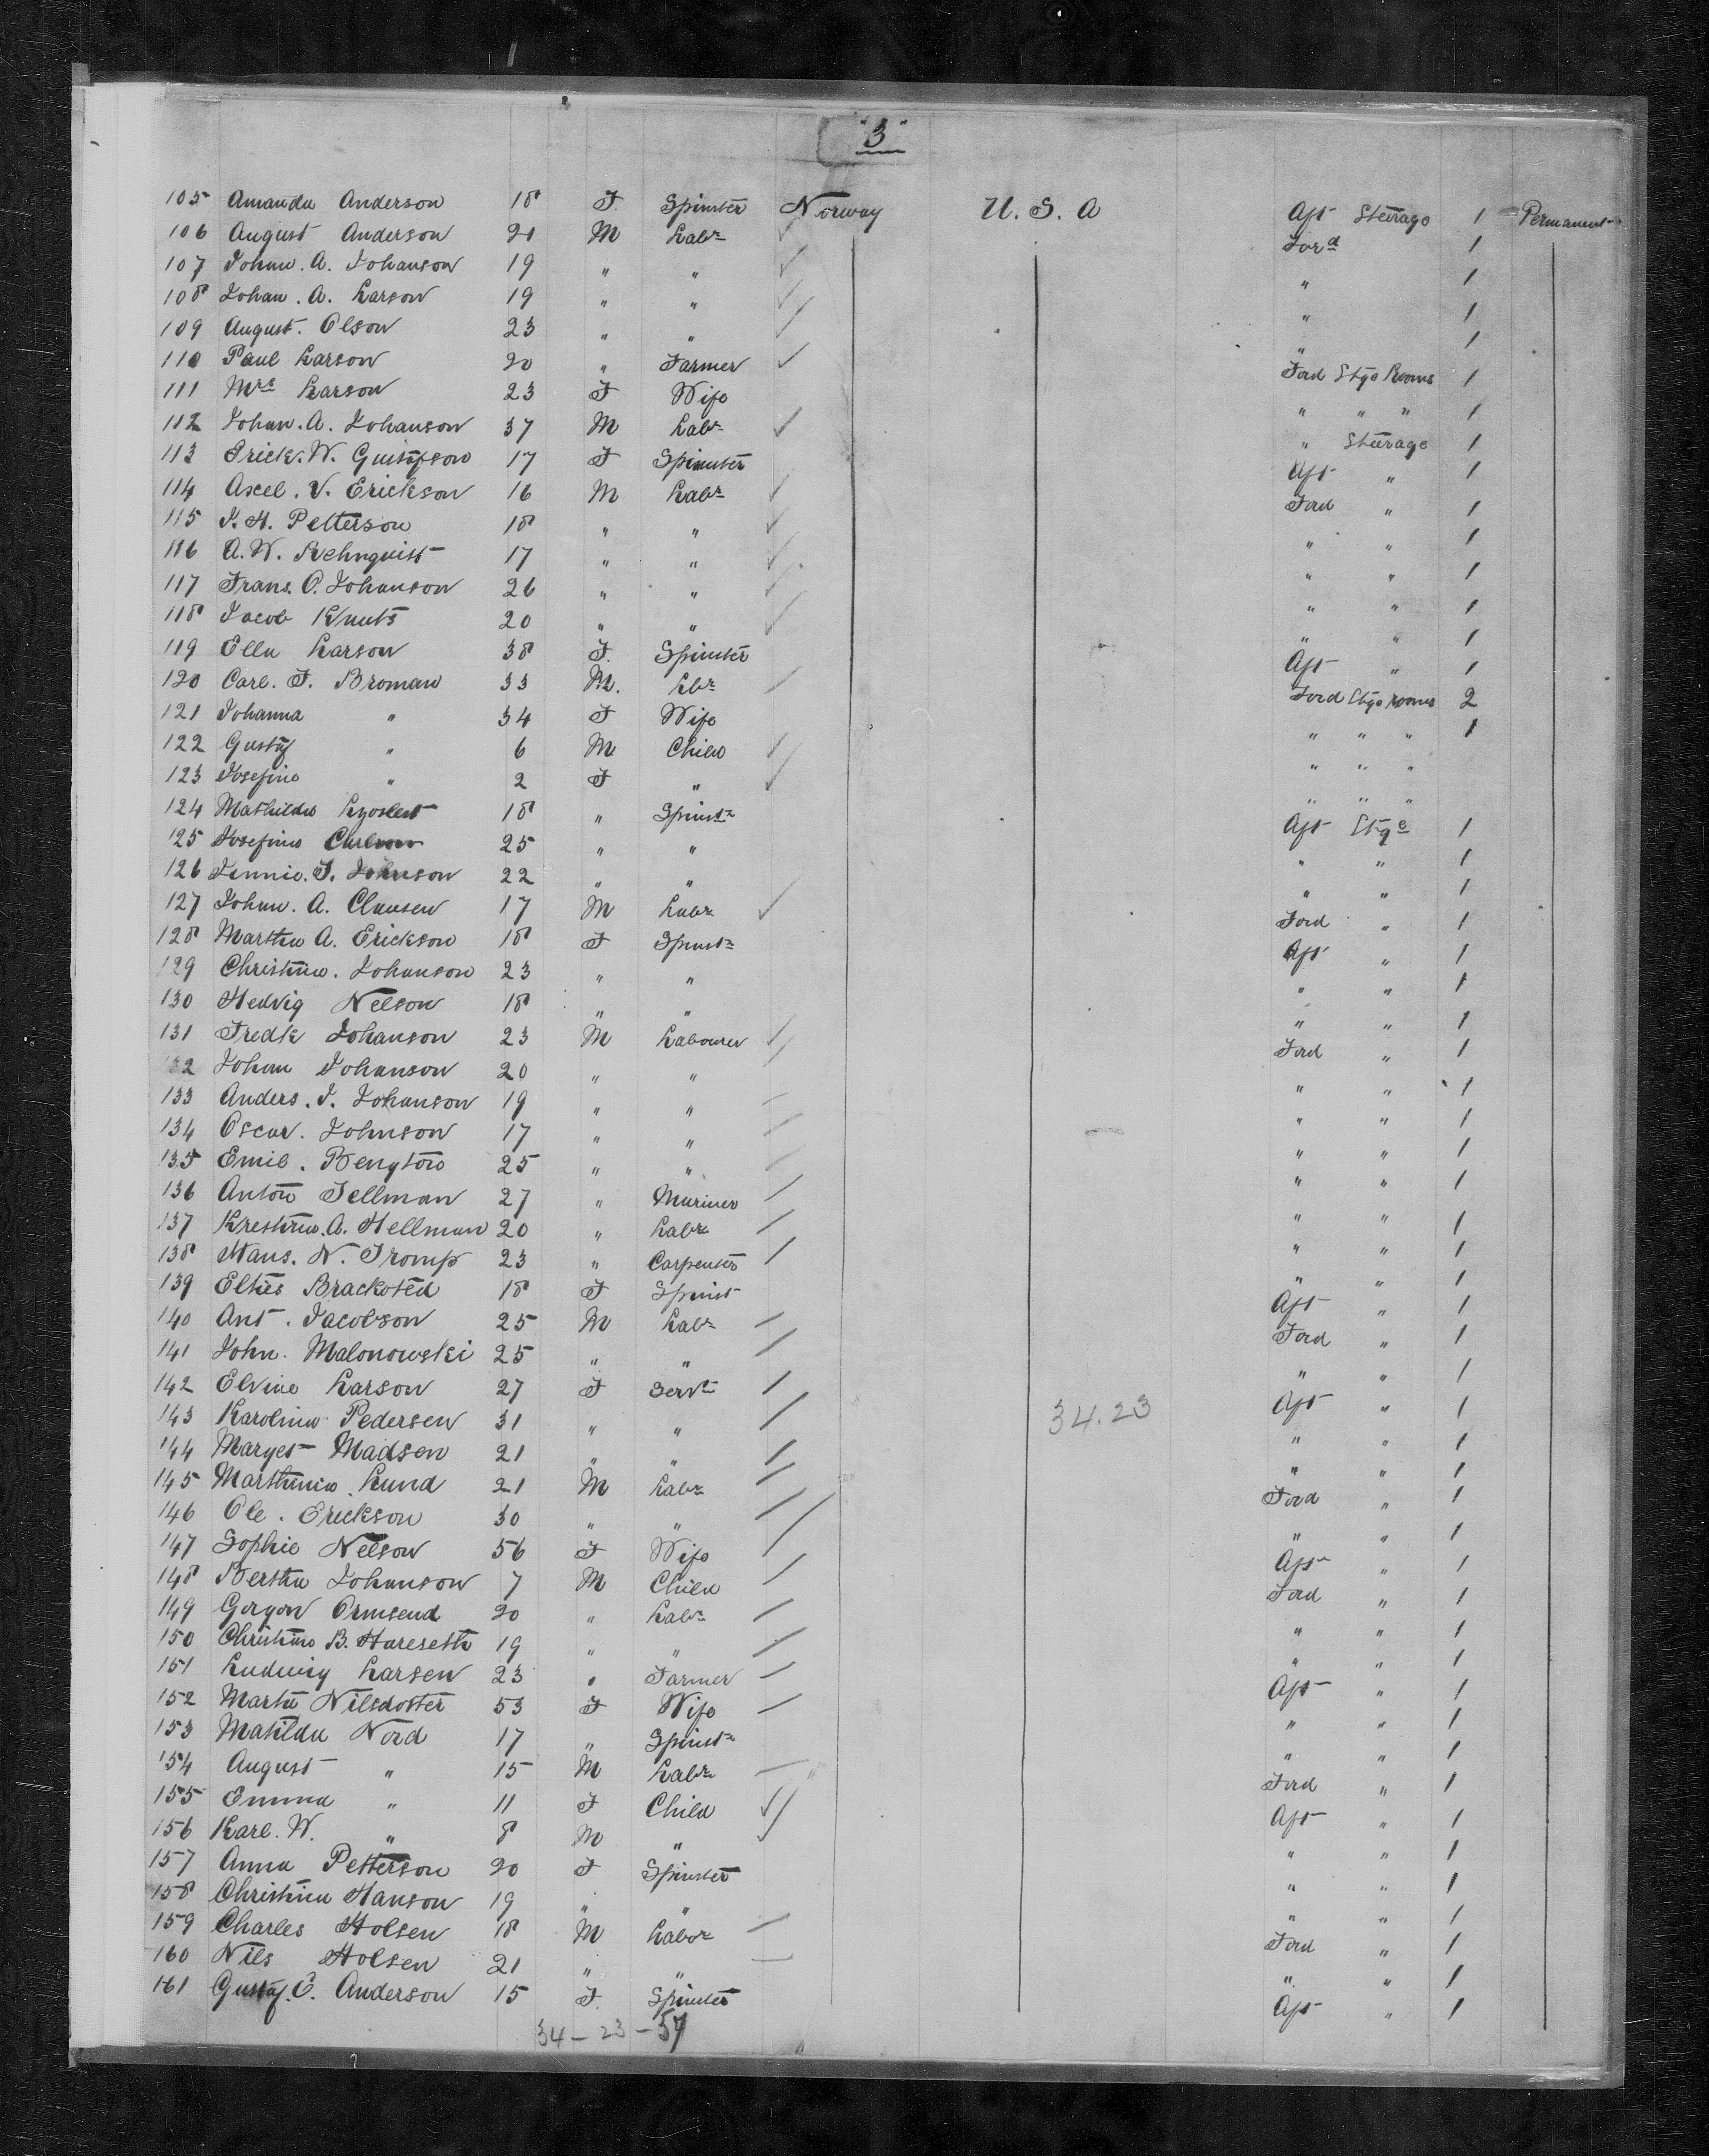 "3"
105 Amanda Anderson 18 F. Spinster Norway U. S. A Aft Steerage 1 Permanent
106 August Anderson 21 M Labr Ford 1
107 Johan. A. Johanson 19 " " " 1
108 Johan. A. Larson 19 " " " 1
109 August. Olson 23 " " " 1
110 Paul Larson 20 " Farmer Ford Stge Rooms 1
111 Mrs Larson 23 F Wife " " " 1
112 Johan. A. Johanson 37 M Labr " Steerage 1
113 Erick. W. Gustafson 17 F Spinster Aft " 1
114 Axel. V. Erickson 16 M Labr Ford " 1
115 J. H. Petterson 18 " " " " 1
116 A. W. Rehnquist 17 " " " " 1
117 Frans. O. Johanson 26 " " " " 1
118 Jacob Knuts 20 " " " " 1
119 Ella Larson 38 F. Spinster Aft " 1
120 Carl. F. Broman 33 M. Lbr Ford Stge rooms 2
121 Johanna " 34 F Wife " " " 1
122 Gustaf " 6 M Child " " "
123 Josefine " 2 F " " " "
124 Mathilda 18 " Spinstr Aft Stge 1
125 Josefina 25 " " " " 1
126 Jennie. F. Johnson 22 " " " " 1
127 Johan. A. Clausen 17 M Labr Ford " 1
128 Martha A. Erickson 18 F Spinstr Aft " 1
129 Christina. Johanson 23 " " " " 1
130 Hedvig Nelson 18 " " " " 1
131 Fredk Johanson 23 M Labourer Ford " 1
132 Johan Johanson 20 " " " " 1
133 Anders. J. Johanson 19 " " " " 1
134 Oscar. Johnson 17 " " " " 1
135 Emil. Bengton 25 " " " " 1
136 Anton Tellman 27 " Mariner " " 1
137 A. Hellman 20 " Labr " " 1
138 Hans. N. Tromp 23 " Carpenter " " 1
139 Brackoted 18 F Spinst Aft " 1
140 Ant. Jacobson 25 M Labr Ford " 1
141 John. Malonowski 25 " " " " 1
142 Elvine Larson 27 F Servt Aft " 1
143 Karolina Pedersen 31 " " 34.23 " " 1
144 Marget Madsen 21 " " " " 1
145 Lund 21 M Labr Ford " 1
146 Ole. Erickson 30 " " " " 1
147 Sophie Nelson 56 F Wife Aft " 1
148 Bertha Johanson 7 M Child Ford " 1
149 Ormsend 20 " Labr " " 1
150 Christina B. Hareseth 19 " " " " 1
151 Ludwig Larsen 23 " Farmer Aft " 1
152 Marta Nilsdotter 53 F Wife " " 1
153 Matilda Nord 17 " Spinstr " " 1
154 August " 15 M Labr Ford " 1
155 Emma " 11 F Child Aft " 1
156 Karl. W. " 8 M " " " 1
157 Anna Petterson 20 F Spinster " " 1
158 Christina Hanson 19 " " " " 1
159 Charles Holsen 18 M Labor Ford " 1
160 Nils Holsen 21 " " " " 1
161 Gustaf. E. Anderson 15 F. Spinster Aft " 1
34 – 23 – 57